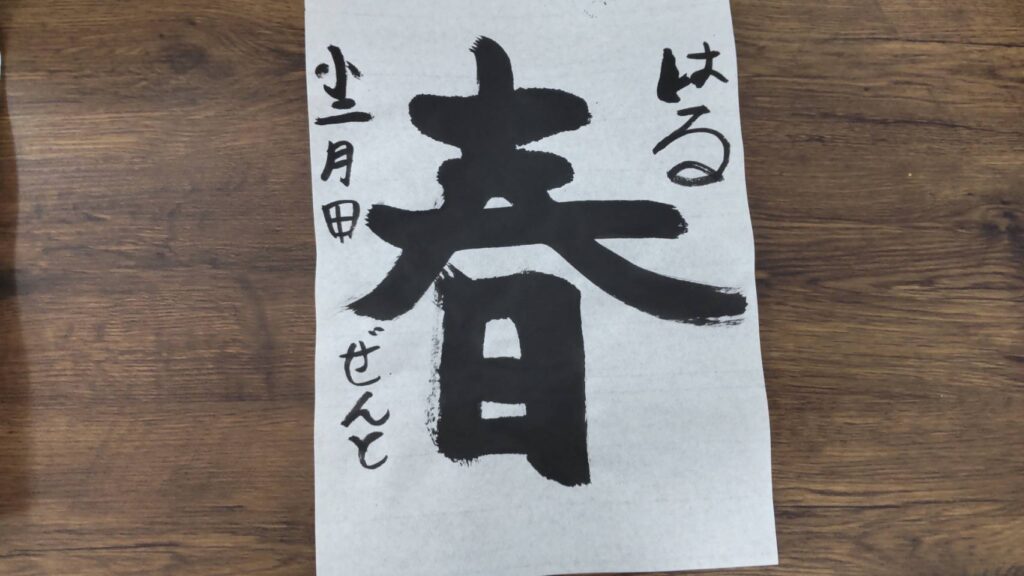 はる
春
小二 月田 ぜんと